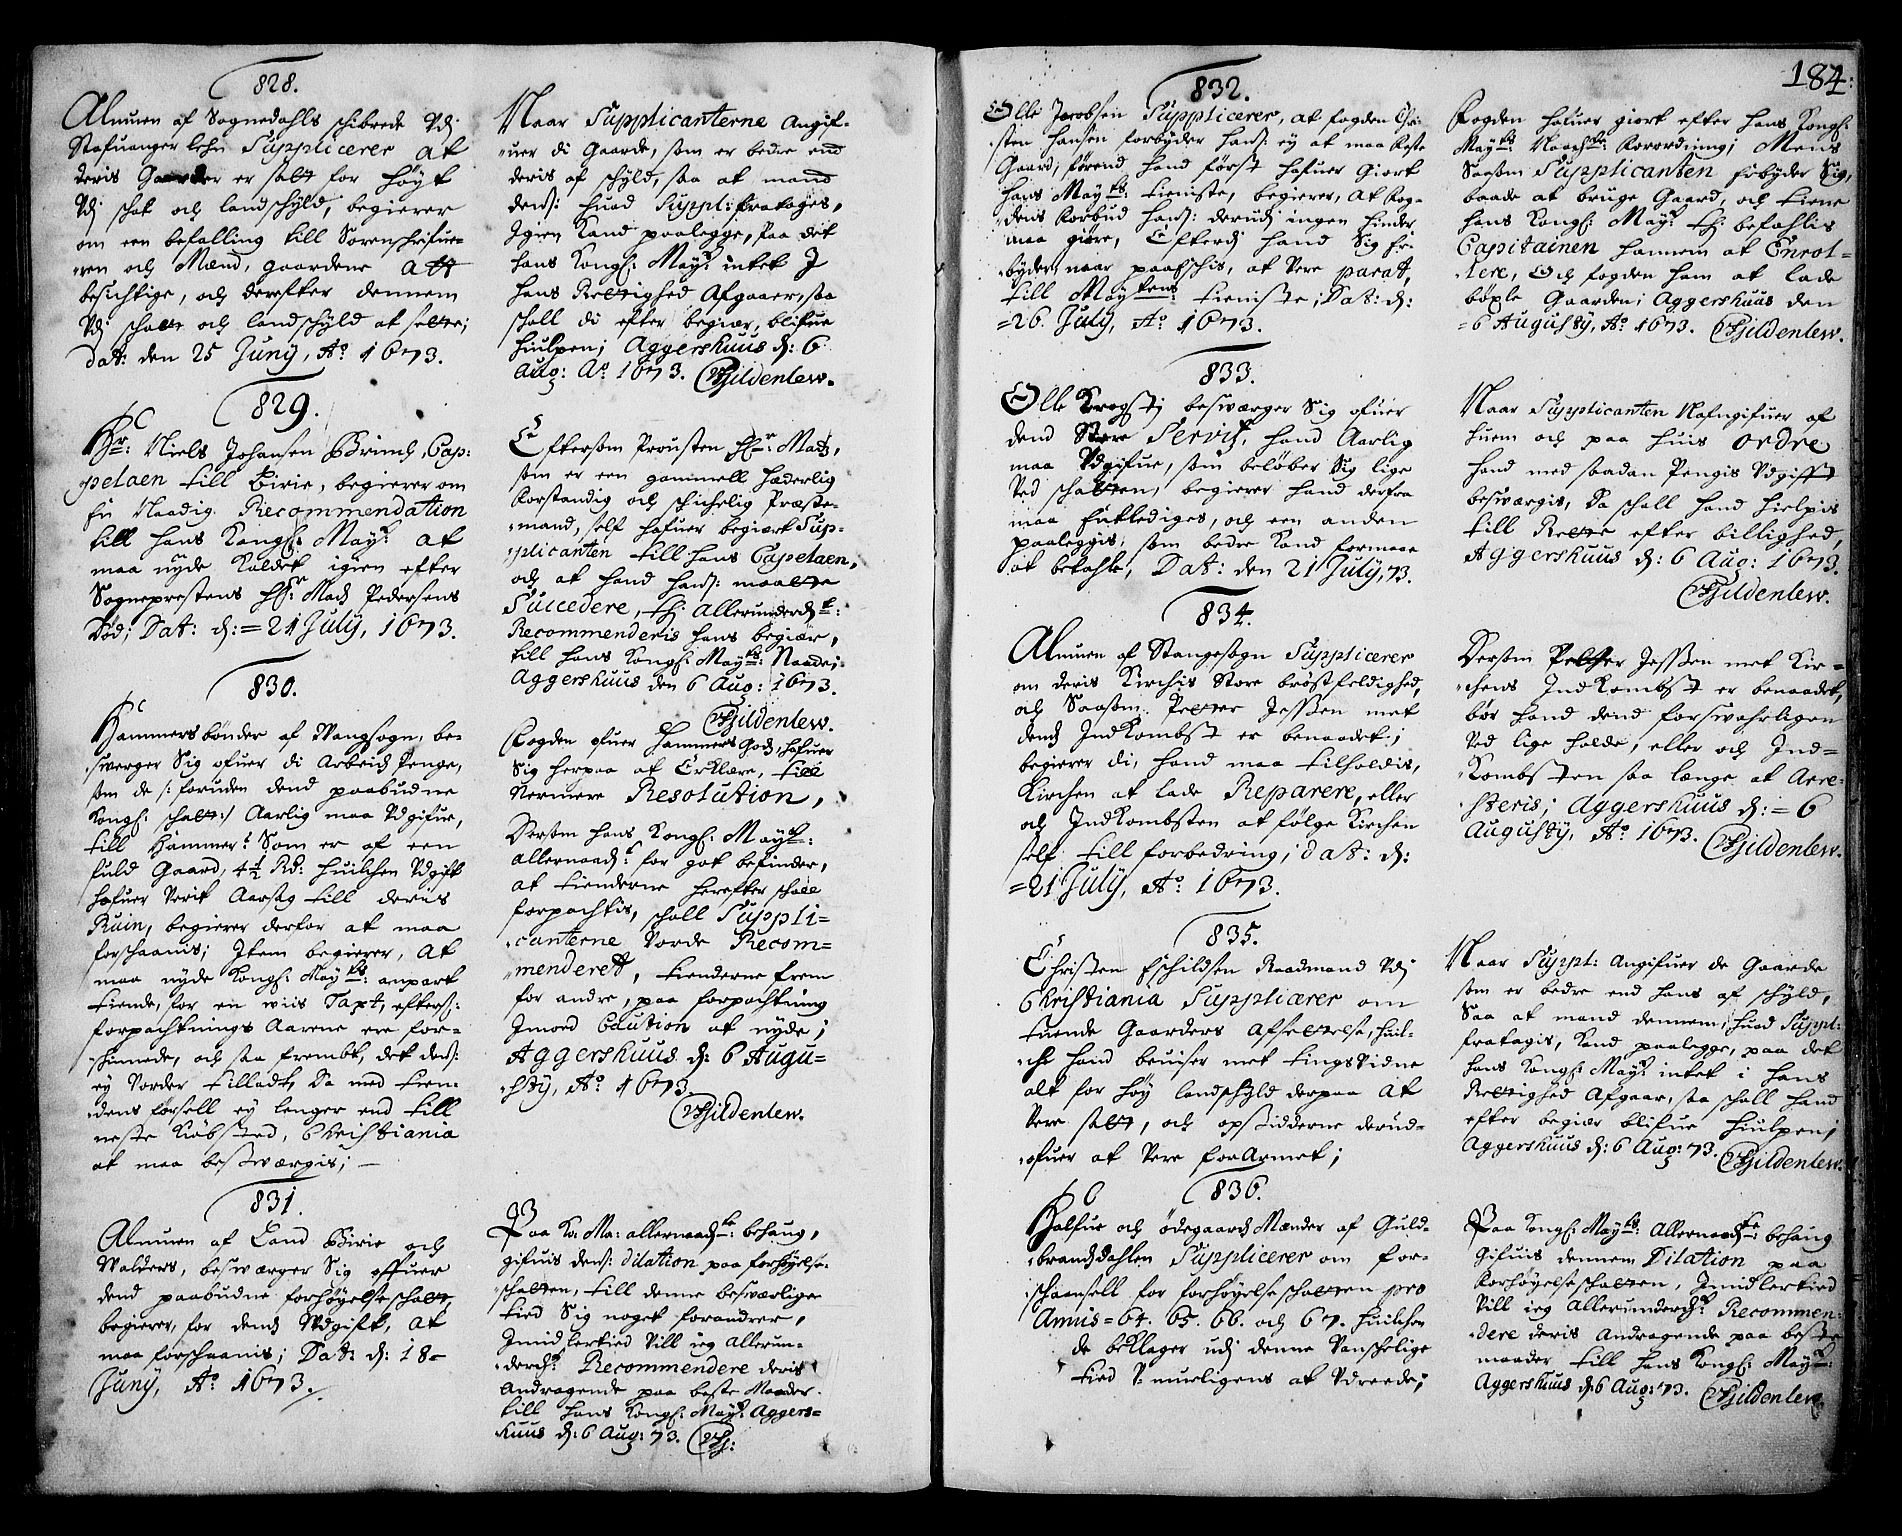 828.
Almuen af Sognedahls schibrede Vdj
Stafuanger lehn Supplicerer at
deris Gaarder er satt for høyt
Vdj schat och landschyld, begierer
om een befalling till Sorenschrifue-
ren och Mænd, gaardene att
besichtige, och derefter dennem
Vdj schatt och landschyld at sette;
Dat: den 25 Juny, Ao 1673.
Naar Supplicanterne Angif-
uer di Gaarde, som er bedre end
deris af schyld, saa at mand
dend: huad Suppl: fratages,
Igien Kand paalegge, Paa det
hans Kongl: Mayt: intet J
hans Rettighed Afgaaer, saa
schall di efter begier, blifue
hiulpen; Aggershuus d: 6
Aug: Ao 1673. Gildenlew.
829.
Hr: Niels Johansen Brinch, Cap-
pelaen till Birie, begierer om
En Naadig Recommendation
till hans Kongl: Mayt: at
maa nyde Kaldet igien efter
Sogneprestens Hr: Mads Pedersens
Død; Dat: d: 21 July, 1673.
Eftersom Prousten Hr: Mads,
som er een gammell hæderlig
Forstandig och schichelig Præste-
mand, self hafuer begiert Sup-
plicanten till hans Capelaen,
och at hand hand: maatte
Succedere, thj Allerunderd:
Recommenderis hans begiær,
till hans Kongl: Mayts: Naade;
Aggershuus den 6 Aug: 1673.
Gildenlew.
830.
Hammersbønder af Wangsogn, be-
swerger Sig ofuer di Arbeids Penge,
som de /: foruden dend paabudne
Kongl: schatt :/ Aarlig maa Vdgifue,
till Hammer: Som er af een
fuld Gaard, 4½ Rd: huilchen Vdgift
hafuer Verit Aarsag till deris
Ruin, begierer derfor at maa
forschaanis; Item begierer, At
maa nyde Kongl: Mayts: anpart
tiende, for en wiis Taxt, efters:
forpachtnings Aarene ere for-
schinnede, och saa frembt, det dend:
ey Vorder tilladt, Da med tien-
dens førsell ey lenger end till
neste Kiøbsted, Christiania
at maa besswærgis;
Fogden ofuer Hammers God: hafuer
Sig herpaa at Erklære, till
Nermere Resolution,
Dersom hans Kongl: Mayt:
allernaad: for got befinder,
at tienderne herefter schall
forpachtis, schall Suppli-
canterne Vorde Recom-
menderet, tienderne frem
for andre, paa forpachtning
Jmod Caution at nyde;
Aggershuus d: 6 Augu-
sty, Ao 1673.
Gildenlew.
831.
Almuen af Land Birie och
Walders, beswærger Sig offuer
dend paabudne forhøyelse schatt,
begierer, for dend Vdgift, At
maa forschaanis; Dat: d: 18
Juny, Ao 1673.
Paa Ko: Ma: allernaad: behaug,
gifuis dend: dilation paa forhøyelse-
schatten, till denne besværlige
tied Sig noget forandrer,
Jmidlertied Vill ieg Allerun-
derd: Recommendere deris
Andragende paa beste Maader
till hans Kongl: Mayt: Aggers-
huus d: 6 Aug: 73. G:
184.
832.
Olle Jacobsen Supplicerer, at fogden Chri-
sten Hansen forbyder hand: ey at maa feste
Gaard, førend hand først hafuer giort
hans Mayts: tieniste, begierer, At Fog-
dens Forbud hand: derudj ingen hinder
maa giøre, Efterdj hand Sig til-
byder, naar paaeschis, at Vere parat,
till Maytens: tieniste; Dat: d:
26 July, Ao 1673.
Fogden hafuer giort efter hans Kongl:
Mayts: Naad: Forordning; Mens
Saasom Supplicanten tilbyder Sig,
baade at bruge Gaard, och tiene
hans Kongl: Mayt: thj befahlis
Capitainen hannem at Enrol-
lere, Och fogden ham at lade
bøxle Gaarden; Aggershuus den
6 Augusty, Ao 1673. Gildenlew.
833.
Olle besværger Sig ofuer
dend Store Servis, hand Aarlig
maa Vdgifue, som beløber Sig lige
Ved schatten, begierer hand derfra
maa Entlediges, och een anden
paaleggis, som bedre Kand formaae
at betahle, Dat: den 21 July, 73.
Naar Supplicanten Nafngifuer af
huem och paa huis ordre
hand med saadan Pengis Vdgifft
besværgis, Da schall hand hielpis
till Rette efter billighed,
Aggershuus d: 6 Aug: 1673.
Gildenlew.
834.
Almuen af Stangesogn Supplicerer
om deris Kirchis Store brøstfeldighed,
och Saasom Petter Jessen met
dend Indkombst er benaadet;
begierer di, hand maa tilholdis,
Kirchen at lade Reparere, eller
och Indkombsten at følge Kirchen
self till forbedring; dat: d:
21 July, Ao 1673.
Dersom Petter Jessen met Kir-
chens Indkombst er benaadet,
bør hand dend forswahrligen
Ved lige holde, eller och Ind-
kombsten saa længe at Arre-
steris; Aggershuus d: 6
Augusty, Ao 1673. Gildenlew.
835.
Christen Eschildsen Raadmand Vdj
Christiania Supplicerer om
tuende Gaarders Afsettelse, huil-
che hand beuiser met tingsvidne
alt for høy landschyld derpaa At
Vere satt, och opsidderne derud-
ofuer at Vere forArmet;
Naar Suppt: Angifuer de Gaarde
som er bedre end hans af schyld,
Saa at mand dennem, huad Suppl:
fratagis, Kand paalegge, paa det
hans Kongl: Mayt: intet i hans
Rettighed Afgaar, saa schall hand
efter begier blifue hiulpen;
Aggershuus d: 6 Aug: 73. Gildenlew.
836.
Halfue och ødegaards Mænder af Guld-
brandsdahlen Supplicerer om for-
schaansell for forhøyelse schatten pro
Annis 64. 65. 66. och 67. huilchen
de beklager udj denne Vanschelige
tied V-mueligens at Vdreede;
Paa Kongl: Mayts: Allernaad: behaug
Gifuis dennem Dilation paa
Forhøyelseschatten, Jmidlertied
Vill ieg Allerunderd: Recommen-
dere deris Andragende paa beste
maader till hans Kongl: Mayt:
Aggershuus d: 6 Aug: 73. Gildenlew.